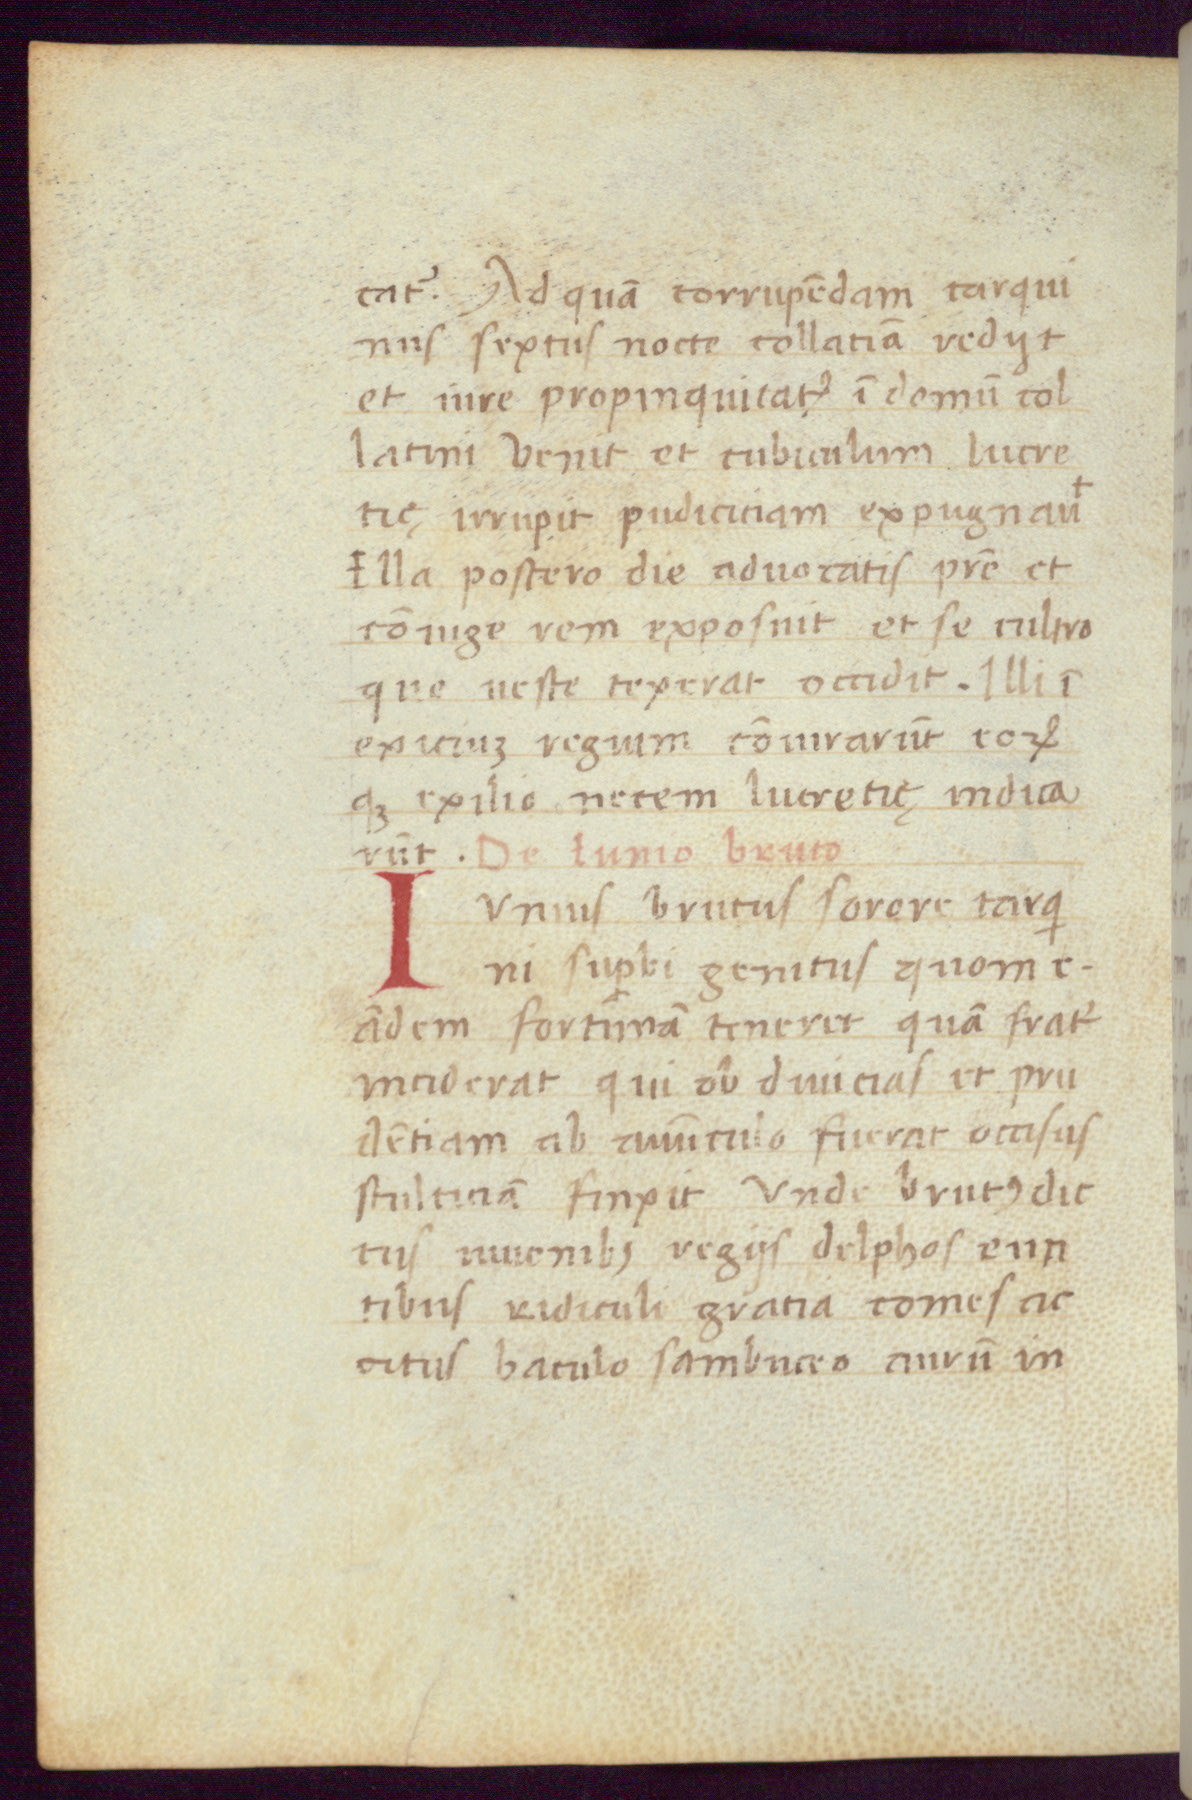 cat᷑. Ad quā corrupēdam tarqui
nus sextus nocte collatiā redijt
et iure propinquitat᷑ ī domū col
latini venit et cubiculum lucre
tię irrupit pudiciciam expugnaūt
Illa postero die aduocatis prē et
cōiuge rem exposuit et se cultro
que ueste texerat occidit. Illi ī
exiciuꝫ regium cōiurarūt eoꝝ
qꝫ exilio necem lucretię indica
rūt. De Iunio bruto
IVnius brutus sorore tarqi
ni suꝑbi genitus quom e-
ādem fortūnā teneret quā frat᷑
inciderat qui ob diuicias et pru
dētiam ab auūculo fuerat occisus
stulticiā finxit Vnde brutꝰ dic
tus iuuenibꝫ regijs delphos eun
tibus ridiculi gratia comes ac
citus baculo sambuceo aurū in